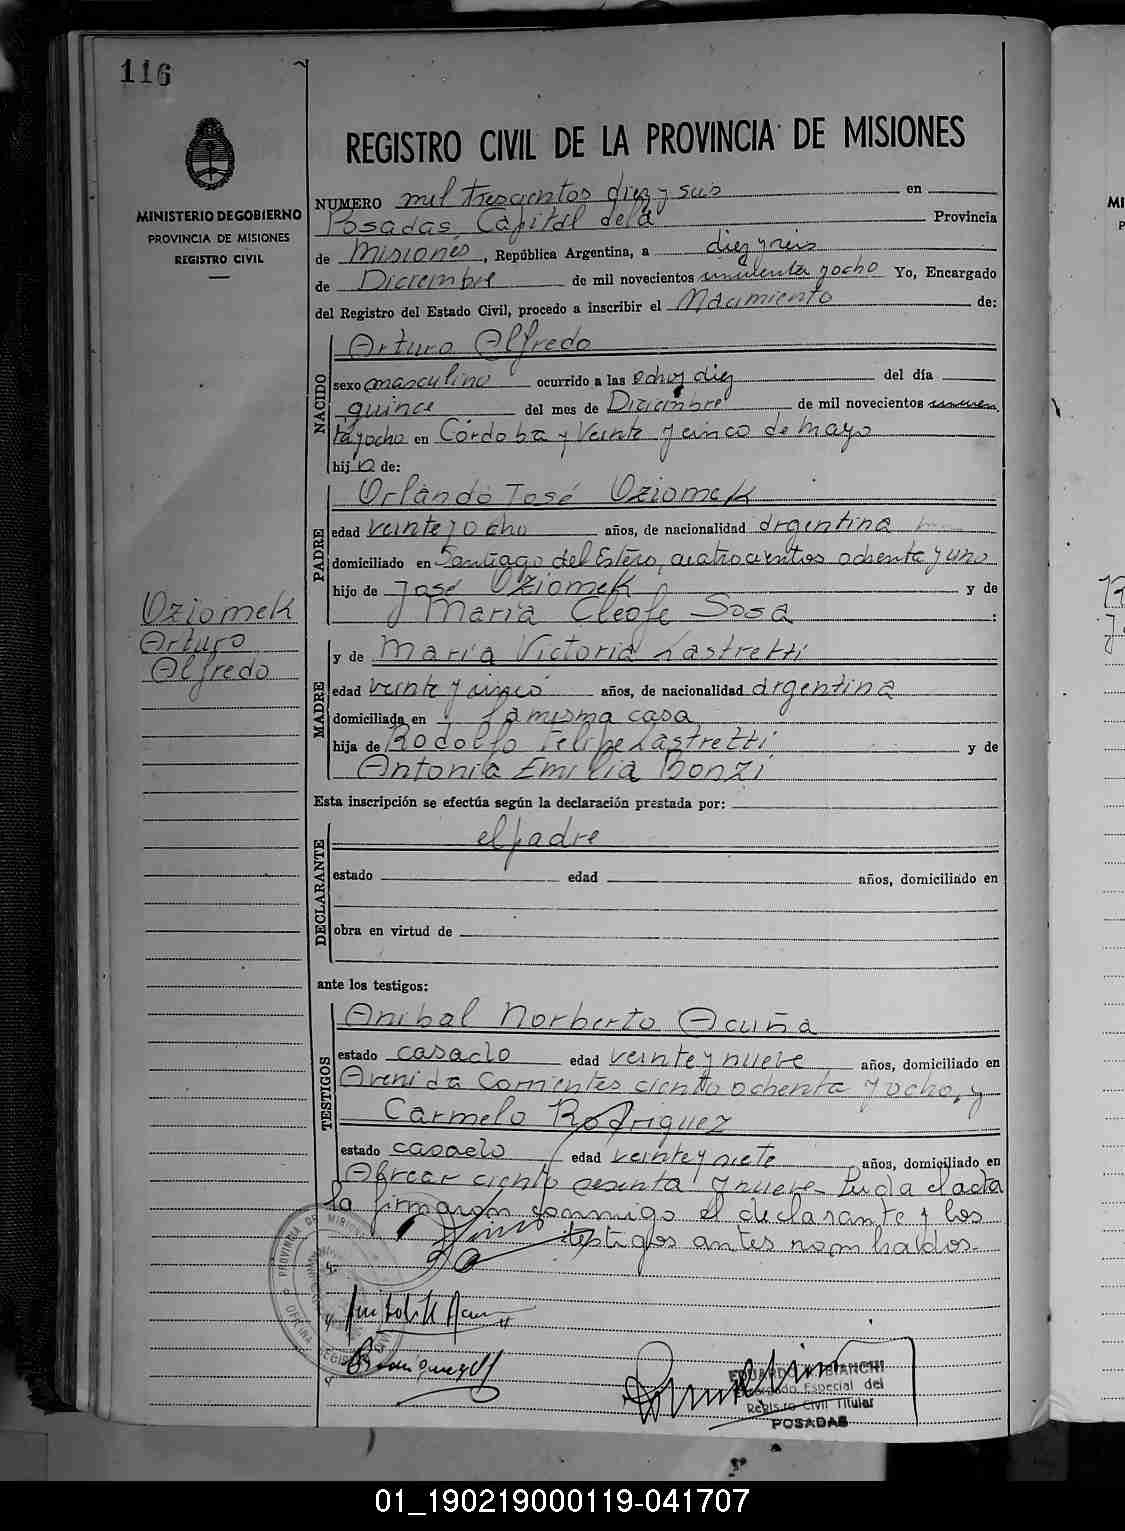 116
REGISTRO CIVIL DE LA PROVINCIA DE MISIONES
MINISTERIO DE GOBIERNO
PROVINCIA DE MISIONES
REGISTRO CIVIL
NUMERO mil trescientos diez y seis en
Posadas, Capital de la Provincia
de Misiones, República Argentina, a diez y seis
de Diciembre de mil novecientos cincuenta y ocho Yo, Encargado
del Registro del Estado Civil, procedo a inscribir el Nacimiento de:
NACIDO
Arturo Alfredo
sexo masculino ocurrido a las ocho y diez del día
quince del mes de Diciembre de mil novecientos cincuen
ta y ocho en Córdoba y Veinte y cinco de mayo
hijo de:
PADRE
Orlando José Oziomek
edad veinte y ocho años, de nacionalidad argentina
domiciliado en Santiago del Estero, cuatrocientos ochenta y uno
hijo de José Oziomek y de
María Cleofe Sosa :
Oziomek
Arturo
Alfredo
MADRE
y de María Victoria Lastretti
edad veinte y cinco años, de nacionalidad argentina
domiciliada en la misma casa
hija de Rodolfo Felipe Lastretti y de
Antonia Emilia Bonzi
Esta inscripción se efectúa según la declaración prestada por:
DECLARANTE
el padre
estado edad años, domiciliado en
obra en virtud de
ante los testigos:
TESTIGOS
Anibal Norberto Acuña
estado casado edad veinte y nueve años, domiciliado en
Avenida Corrientes ciento ochenta y ocho, y
Carmelo Rodriguez
estado casado edad veinte y siete años, domiciliado en
ciento sesenta y nueve Leida el acta
la firmaron conmigo el declarante y los
testigos antes nombrados.
PROVINCIA DE MISIONES
EDUARDO BIANCHI
Encargado Especial del
Registro Civil Titular
POSADAS
01_190219000119-041707